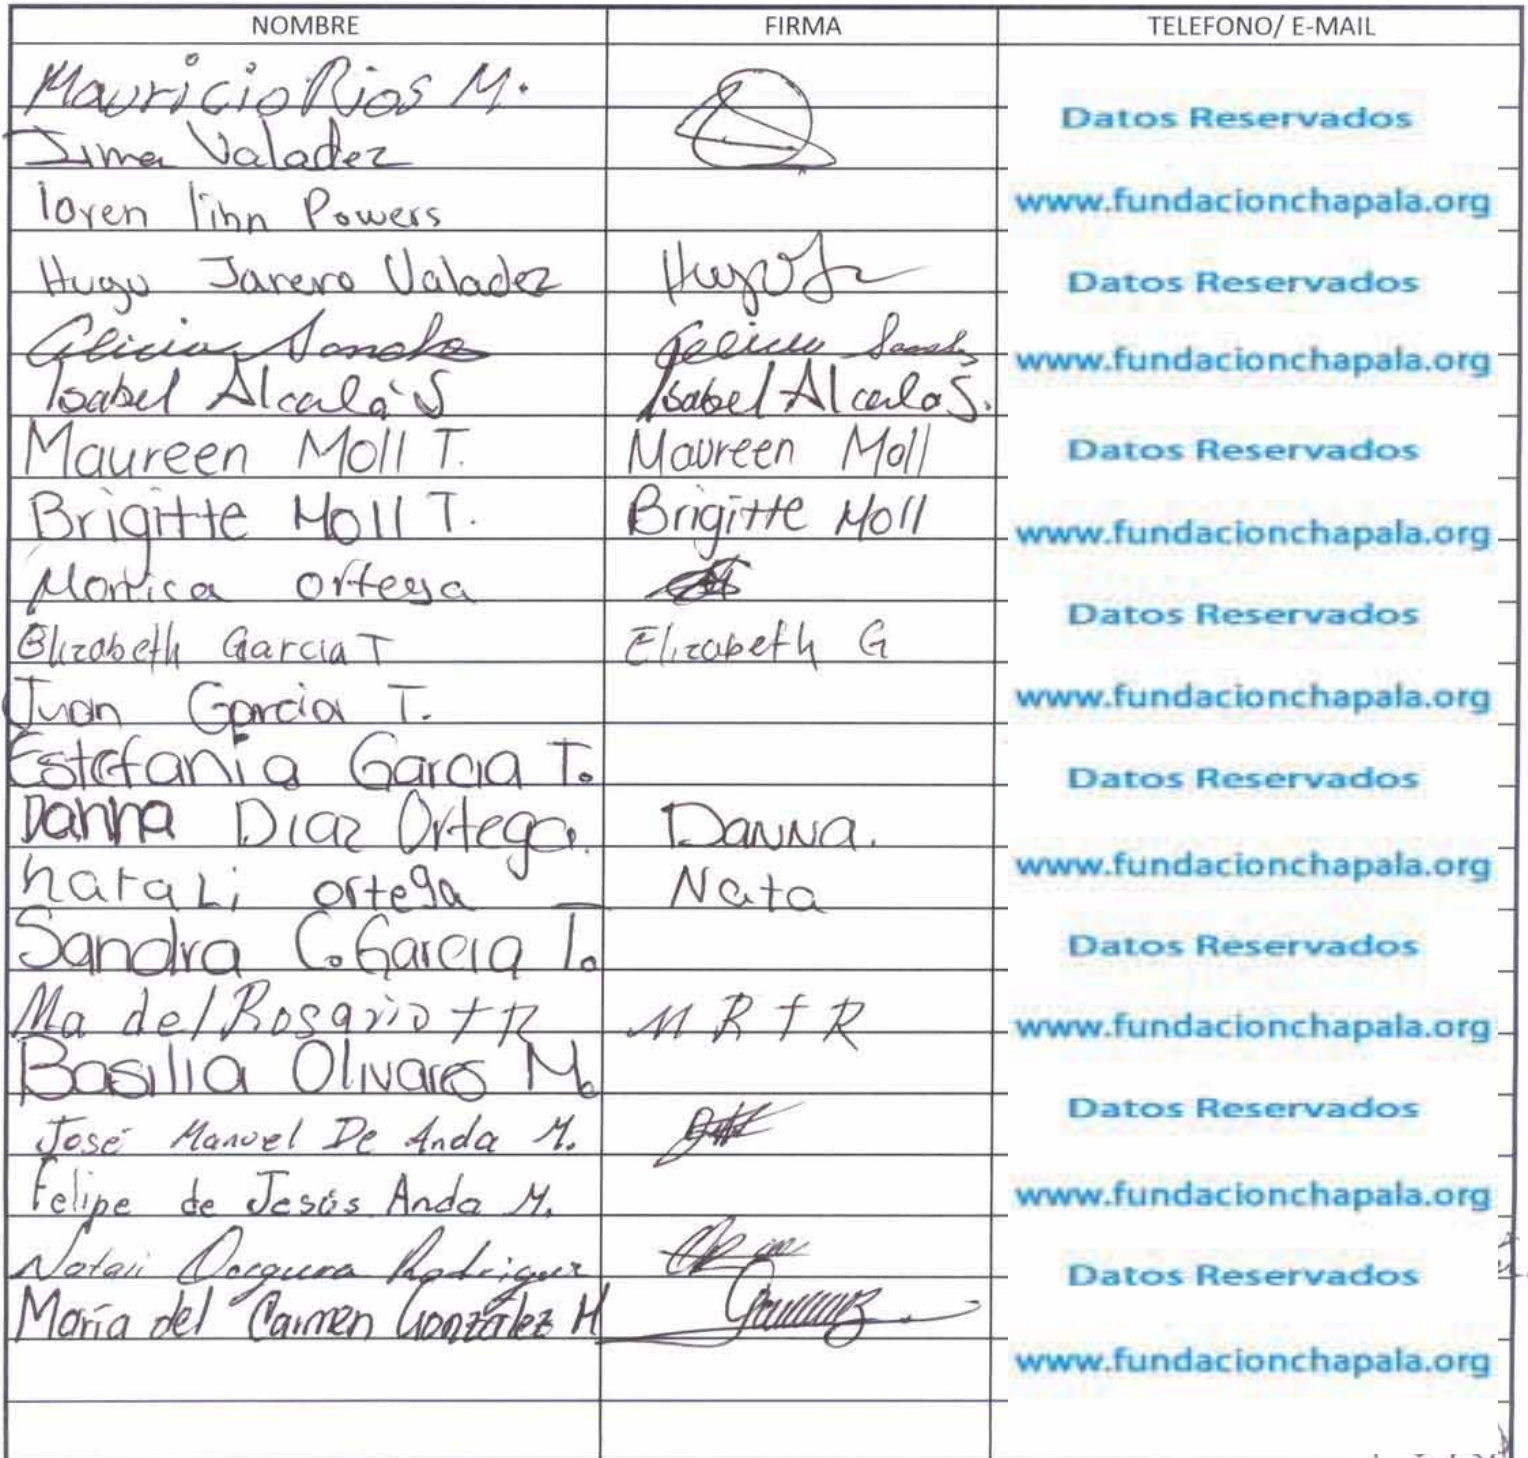 NOMBRE FIRMA TELEFONO/ E-MAIL
Mauricio Rios M.
Datos Reservados
Irma Valadez
loren linn Powers
www.fundacionchapala.org
Hugo Jarero Valadez Hugo
Datos Reservados
Alicia
www.fundacionchapala.org
Isabel Alcalá S Isabel Alcala S.
Maureen Moll T. Maureen Moll
Datos Reservados
Brigitte Moll T. Brigitte Moll
www.fundacionchapala.org
Monica ortega
Datos Reservados
Elizabeth Garcia T Elizabeth G
Juan Garcia T.
www.fundacionchapala.org
Estefania Garcia T.
Datos Reservados
Danna Diaz Ortega. Danna.
www.fundacionchapala.org
natali ortega Nata
Sandra C. Garcia T.
Datos Reservados
Ma del Rosario t R M R t R
www.fundacionchapala.org
Basilia Olivares M.
Datos Reservados
José Manuel De Anda M.
Felipe de Jesús Anda M.
www.fundacionchapala.org
Natali Rodriguez
Datos Reservados
María del Carmen González H
www.fundacionchapala.org